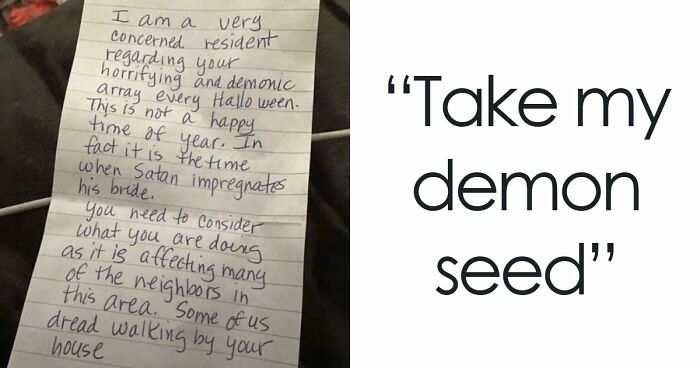 I am a very
concerned resident
regarding your
horrifying and demonic
array every Halloween.
This is not a happy
time of year. In
fact it is the time
when Satan impregnates
his bride.
you need to consider
what you are doing
as it is affecting many
of the neighbors in
this area. Some of us
dread walking by your
house
“Take my
demon
seed”